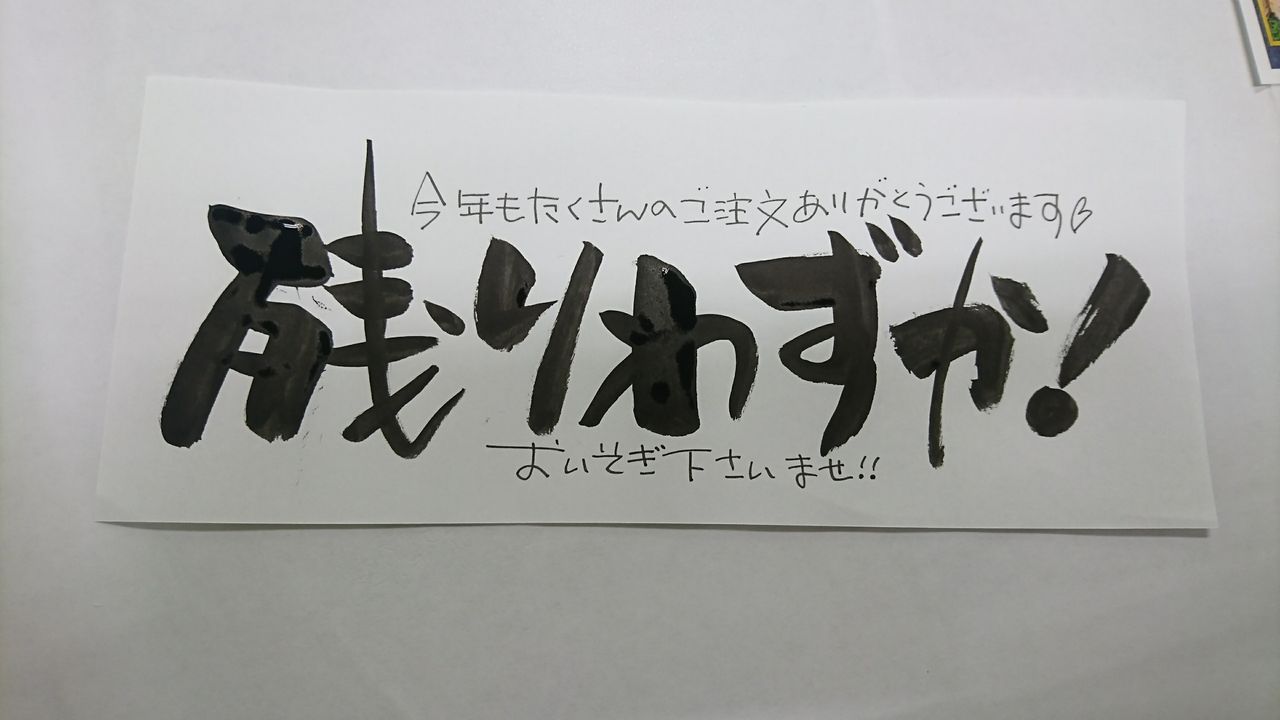 今年もたくさんのご注文ありがとうございます♡
残りわずか!
おいそぎ下さいませ!!